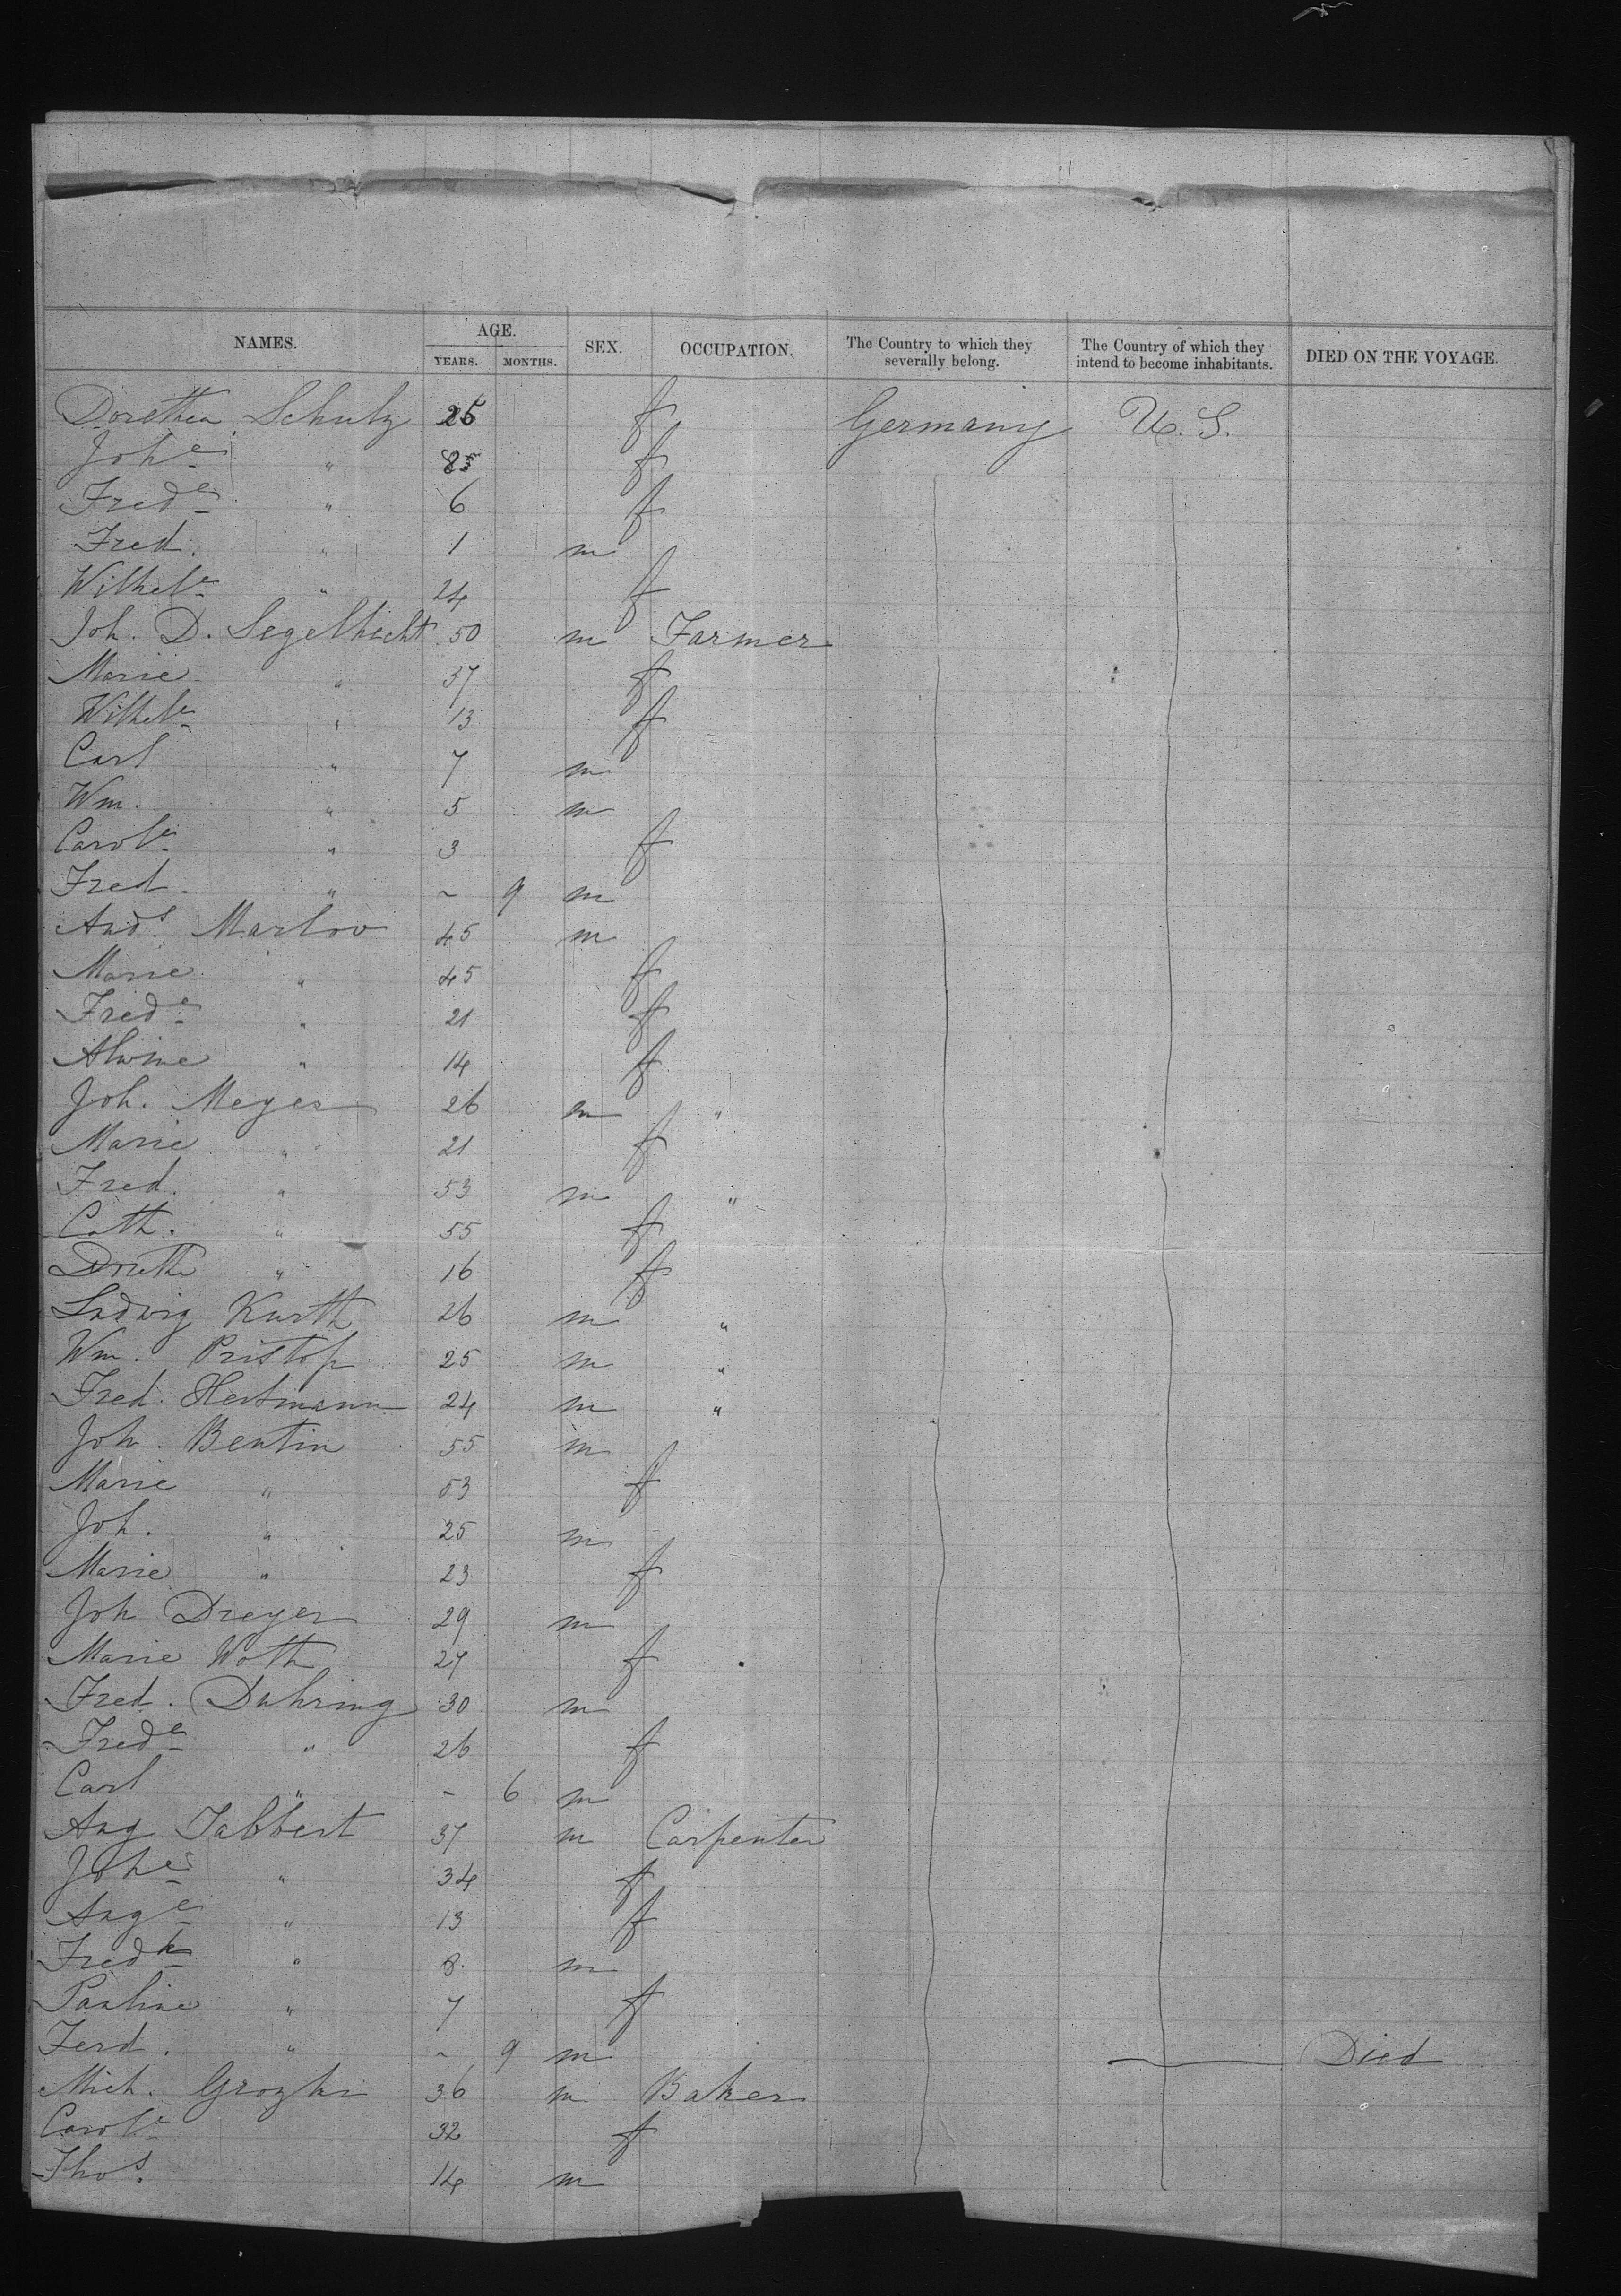 NAMES. AGE. SEX. OCCUPATION. The Country to which they severally belong. The Country of which they intend to become inhabitants. DIED ON THE VOYAGE.
YEARS. MONTHS.
Dorethea Schulz 25 f Germany U. S.
Johe " 85 f
Frede " 6 f
Fred. " 1 m
Wilhele " 24 f
Joh. D. Segelhecht 50 m Farmer
Marie " 37 f
Wilhele " 13 f
Carl " 7 m
Wm. " 5 m
Carole " 3 f
Fred. " ~ 9 m
Ands. Marlow 45 m
Marie " 45 f
Frede " 21 f
Alwine " 14 f
Joh. Meyer 26 m "
Marie " 21 f
Fred. " 53 m "
Cath. " 55 f
Doreth " 16 f
Ludwig Kurth 26 m "
Wm. Pristop 25 m "
Fred. Hertmann 24 m "
Joh. Bentin 55 m
Marie " 53 f
Joh. " 25 m
Marie " 23 f
Joh Dreyer 29 m
Marie Woth 27 f
Fred. Duhring 30 m
Frede " 26 f
Carl " - 6 m
Aug Tabbert 37 m Carpenter
Johe " 34 f
Auge " 13 f
Fredk " 8 m
Pauline " 7 f
Ferd. " ~ 9 m Died
Mich. Grozki 36 m Baker
Carole 32 f
Thos. 14 m